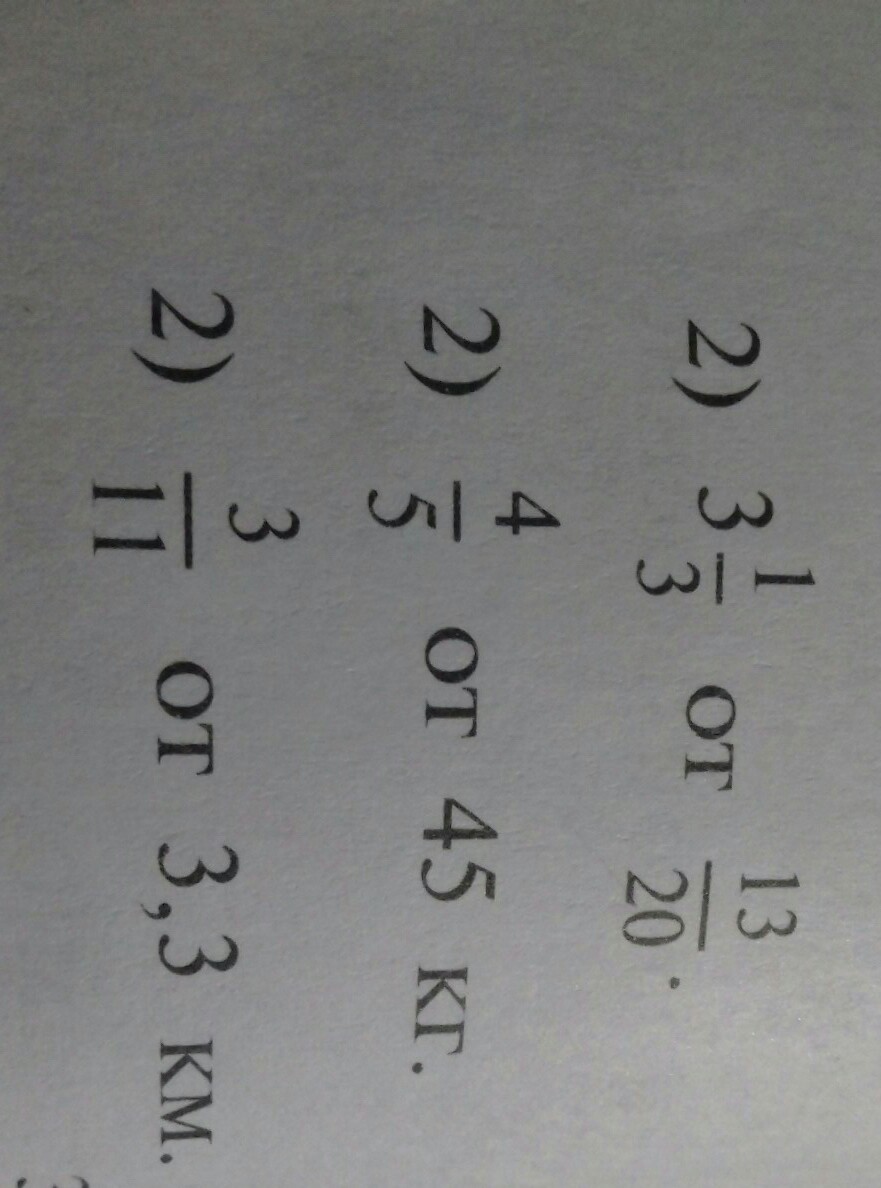 2) 3 1/3 от 13/20.
2) 4/5 от 45 кг.
2) 3/11 от 3,3 км.